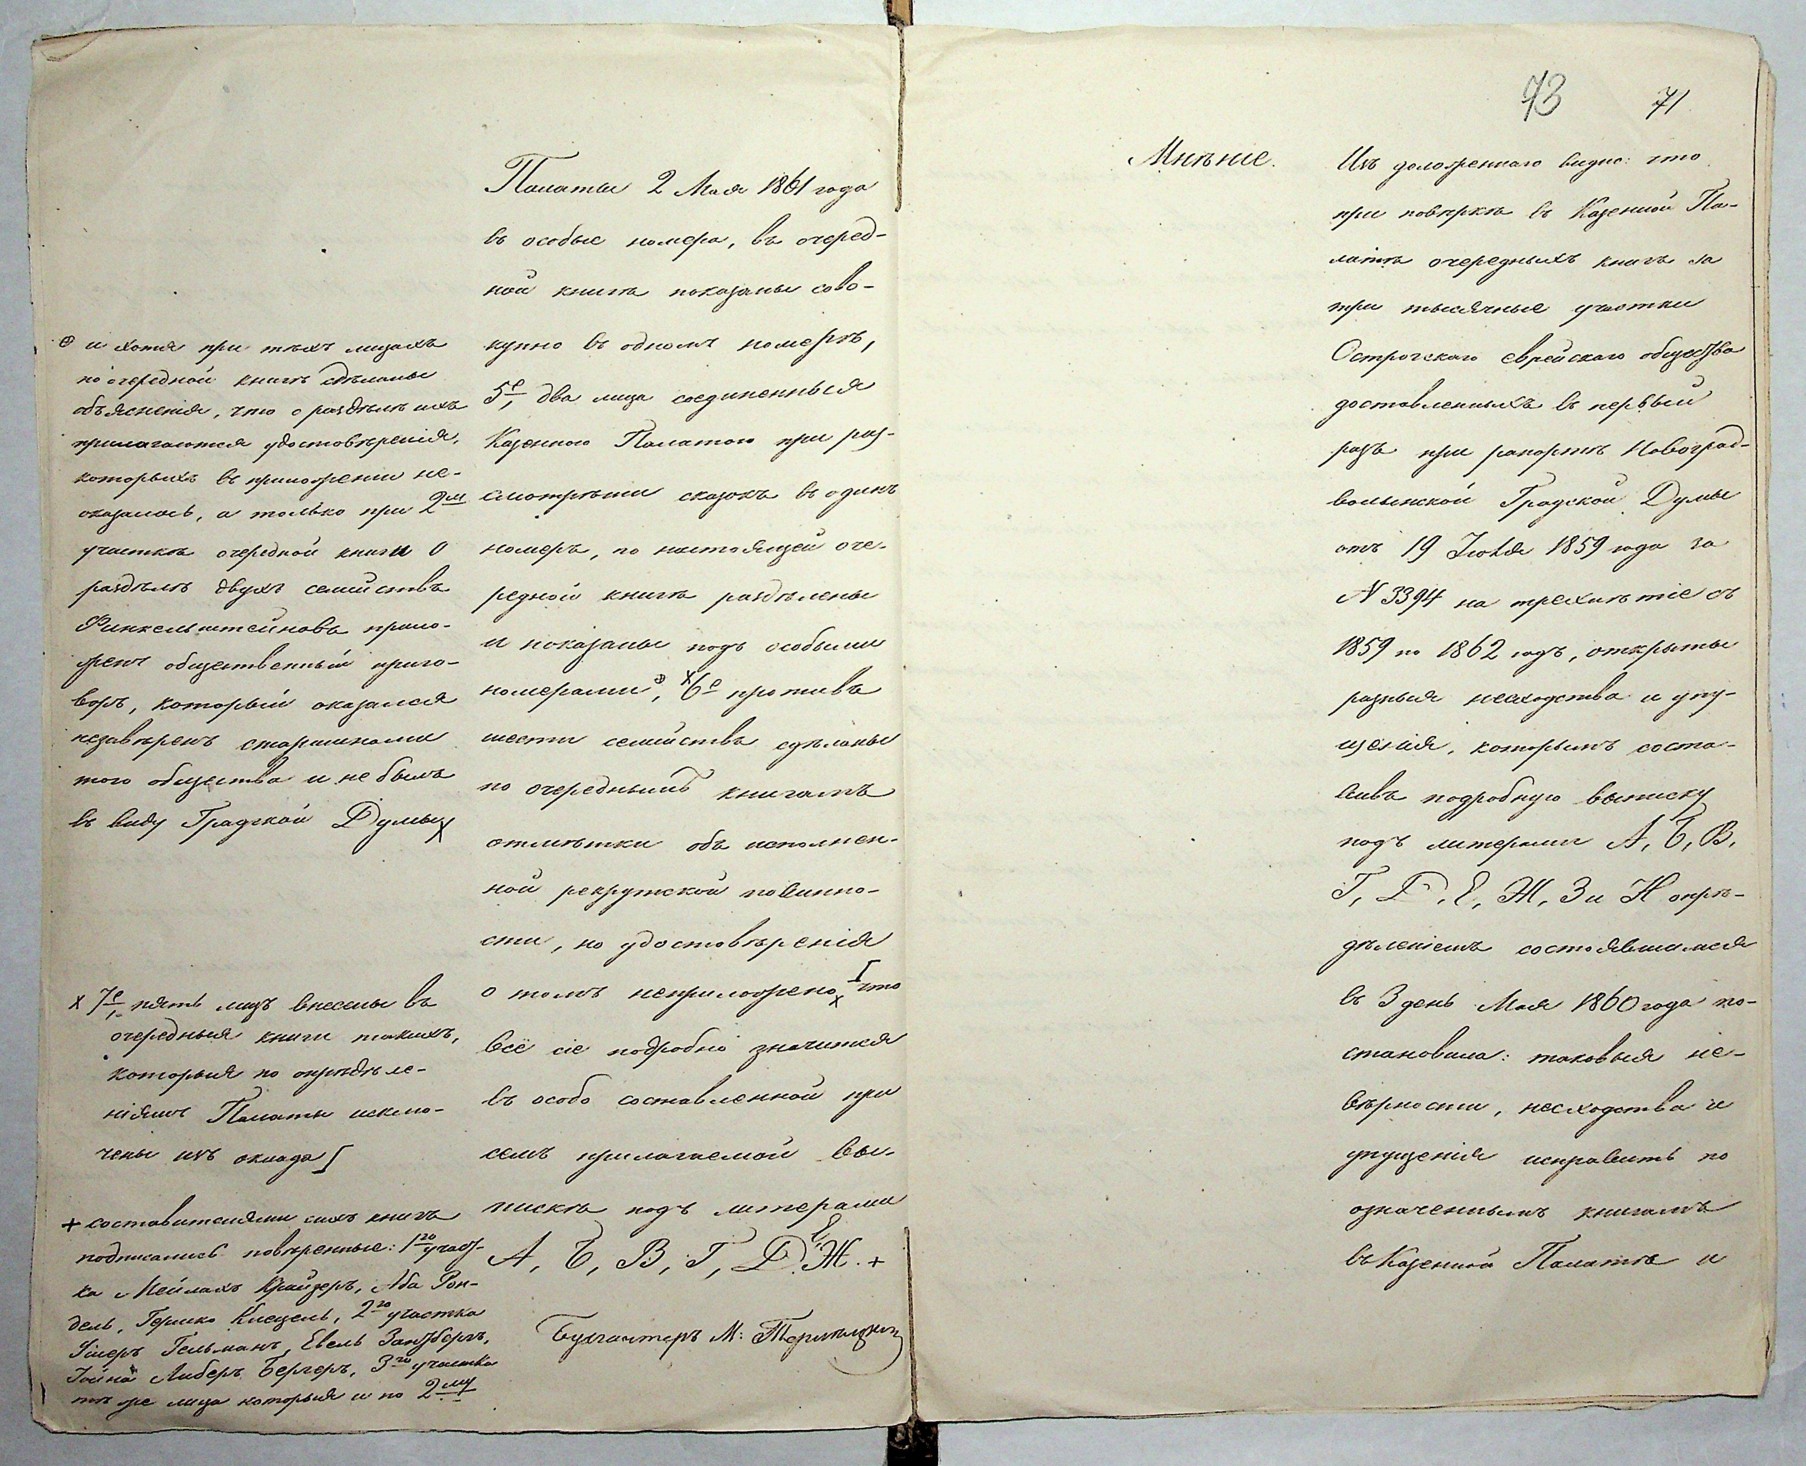 Палаты 2 Мая 1861 года
въ особые номера, въ очеред-
ной книгѣ показаны сово-
купно въ одномъ номерѣ,
5е, два лица соединенныя
Казенною Палатою при раз-
смотрѣнiи сказокъ въ одинъ
номеръ, по настоящей оче-
редной книгѣ раздѣлены
и показаны подъ особыми
номерами ⊕, х 6е противъ
шести семействъ сдѣланы
по очереднымъ книгамъ
отмѣтки объ исполнен-
ной рекрутской повинно-
сти, но удостовѣренiя
о томъ неприложено х [ что
всё сiе подробно значится
въ особо составленной при
семъ прилагаемой вы-
пискѣ подъ литерами
А, Б, В, Г, Д, Е, Ж. +
Бухгалтеръ М:
⊕ и хотя при тѣхъ лицахъ
по очередной книгѣ сдѣланы
объясненiя, что о раздѣлѣ ихъ
прилагаются удостовѣренiя,
которыхъ въ приложенiи не-
оказалось, а только при 2мъ
участкѣ очередной книги о
раздѣлѣ двухъ семействъ
Финкельштейновъ прило-
женъ общественный приго-
воръ, который оказался
незавѣренъ старшинами
того общества и не былъ
въ виду Градской Думы х
х 7е, пять лицъ внесены въ
очередныя книги такихъ,
которыя по опредѣле-
нiямъ Палаты исклю-
чены изъ оклада [
+ составителями сихъ книгъ
подписались повѣренные: 1го участ-
ка Мейлахъ Крайзеръ, Аба Рон-
дель, Гершко Кисцель, 2го участка
Ушеръ Гельманъ, Евель Занбергъ,
Iойна Либеръ Бергеръ, 3го участка
тѣ же лица которыя и по 2му
73 71
Мнѣнiе.
Изъ доложеннаго видно: что
при повѣркѣ въ Казенной Па-
латѣ очередныхъ книгъ за
три тысячные участки
Острогскаго еврейскаго общества
доставленныхъ въ первый
разъ при рапортѣ Новоград-
волынской Градской Думы
отъ 19 Iюля 1859 года за
N 3394 на трехлѣтiе съ
1859 по 1862 годъ, открыты
разныя несходства и упу-
щенiя, которымъ соста-
вивъ подробную выписку
подъ литерами А, Б, В,
Г, Д, Е, Ж, З и И опре-
дѣленiемъ состоявшимся
въ 3 день Мая 1860 года по-
становила: таковыя не-
вѣрности, несходства и
упущенiя исправить по
означеннымъ книгамъ
въ Казенной Палатѣ и